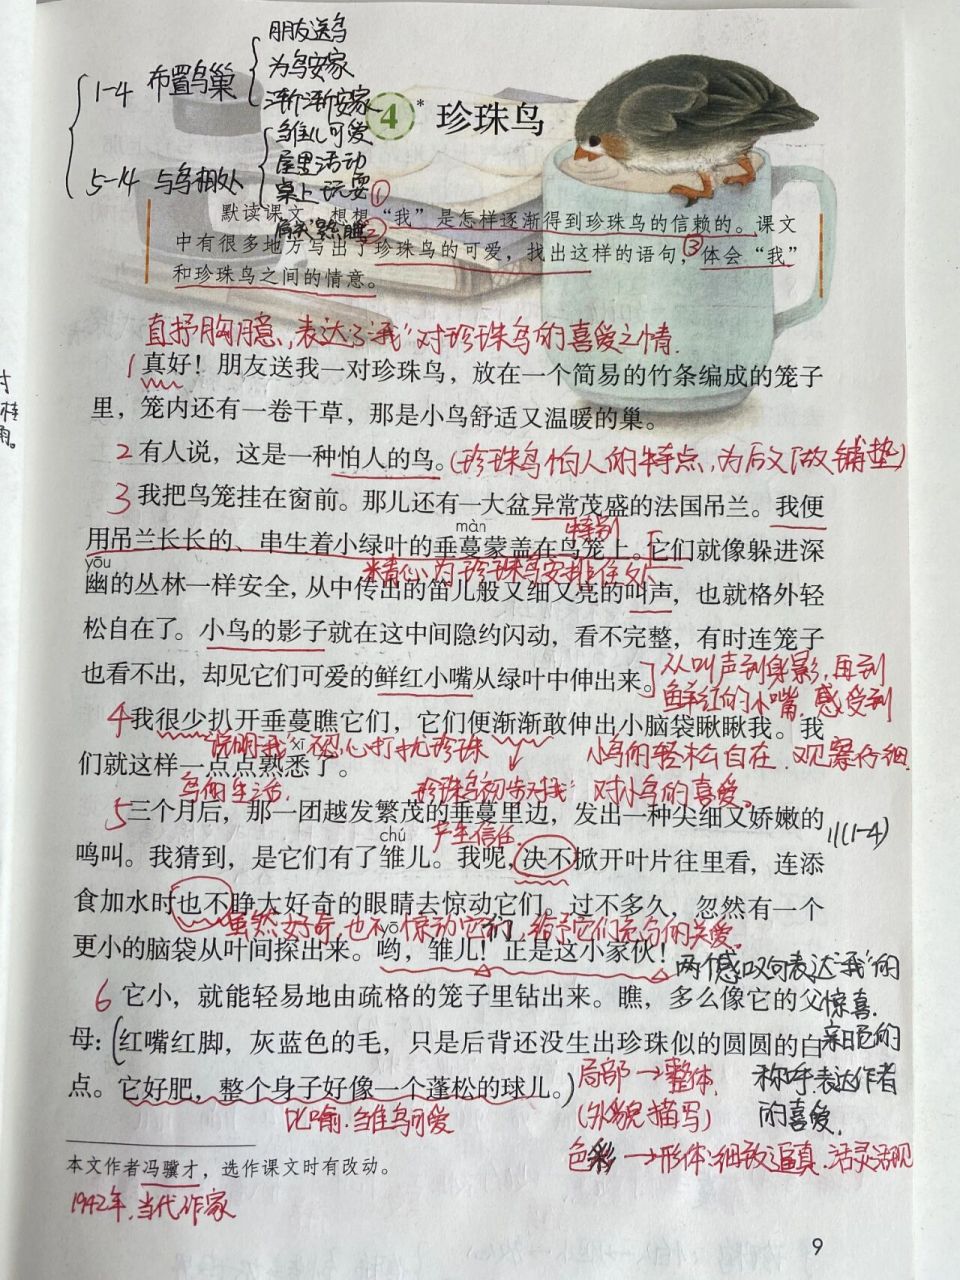 朋友送鸟
1-4 布置鸟巢
为鸟安家
渐渐安家
4* 珍珠鸟
雏儿可爱
5-14 与鸟相处
屋里活动
桌上玩耍
默读课文,想想①“我”是怎样逐渐得到珍珠鸟的信赖的。课文
中有很多地方写出了②珍珠鸟的可爱,找出这样的语句,③体会“我”
和珍珠鸟之间的情意。
直抒胸臆,表达了“我”对珍珠鸟的喜爱之情.
1 真好!朋友送我一对珍珠鸟,放在一个简易的竹条编成的笼子
里,笼内还有一卷干草,那是小鸟舒适又温暖的巢。
2 有人说,这是一种怕人的鸟。(珍珠鸟怕人的特点,为后文做铺垫)
3 我把鸟笼挂在窗前。那儿还有一大盆异常茂盛的法国吊兰。我便
特别
màn
用吊兰长长的、串生着小绿叶的垂蔓蒙盖在鸟笼上。[它们就像躲进深
精心为珍珠鸟安排住处
yōu
幽的丛林一样安全,从中传出的笛儿般又细又亮的叫声,也就格外轻
松自在了。小鸟的影子就在这中间隐约闪动,看不完整,有时连笼子
也看不出,却见它们可爱的鲜红小嘴从绿叶中伸出来。]
从叫声到身影,再到
鲜红的小嘴,感受到
小鸟的轻松自在.观察仔细
对小鸟的喜爱。
4 我很少扒开垂蔓瞧它们,它们便渐渐敢伸出小脑袋瞅瞅我。我
说明“我”不忍心打扰珍珠
鸟的生活.
xī
们就这样一点点熟悉了。
珍珠鸟初步对“我”
产生信任.
5 三个月后,那一团越发繁茂的垂蔓里边,发出一种尖细又娇嫩的
11(1-4)
chú
鸣叫。我猜到,是它们有了雏儿。我呢,决不掀开叶片往里看,连添
食加水时也不睁大好奇的眼睛去惊动它们。过不多久,忽然有一个
虽然好奇,也不惊动它们,给予它们充分的关爱.
yō
更小的脑袋从叶间探出来。哟,雏儿!正是这小家伙!
两个感叹句表达“我”的
惊喜.
亲昵的
称呼表达作者
的喜爱.
6 它小,就能轻易地由疏格的笼子里钻出来。瞧,多么像它的父
母:(红嘴红脚,灰蓝色的毛,只是后背还没生出珍珠似的圆圆的白
点。它好肥,整个身子好像一个蓬松的球儿。)
局部→整体.
(外貌描写)
比喻.雏鸟可爱
色彩→形体:细致逼真.活灵活现
本文作者冯骥才,选作课文时有改动。
1942年,当代作家
9